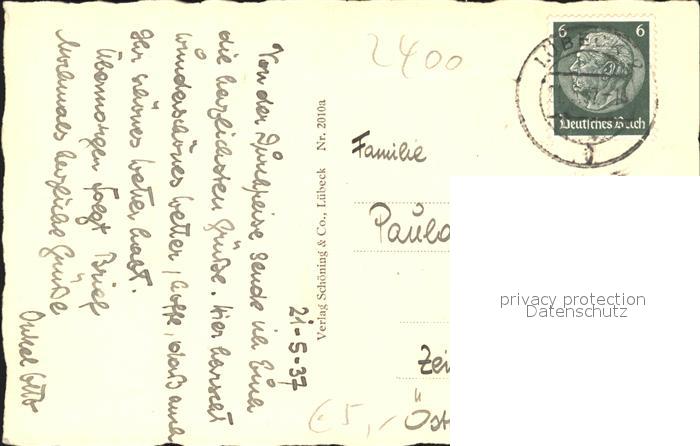 21-5-37
Von der Durchreise sende ich Euch
die herzlichsten Grüße. Hier herrscht
wunderschönes Wetter, hoffe, daß auch
Ihr schönes Wetter habt.
Übermorgen folgt Brief
Nochmals herzliche Grüße
Onkel Otto
Verlag Schöning & Co., Lübeck Nr. 2010a
2400
6 6
LÜBECK
Deutsches Reich
Familie
Paulo
Zei
Öst
€ 5,-
privacy protection
Datenschutz